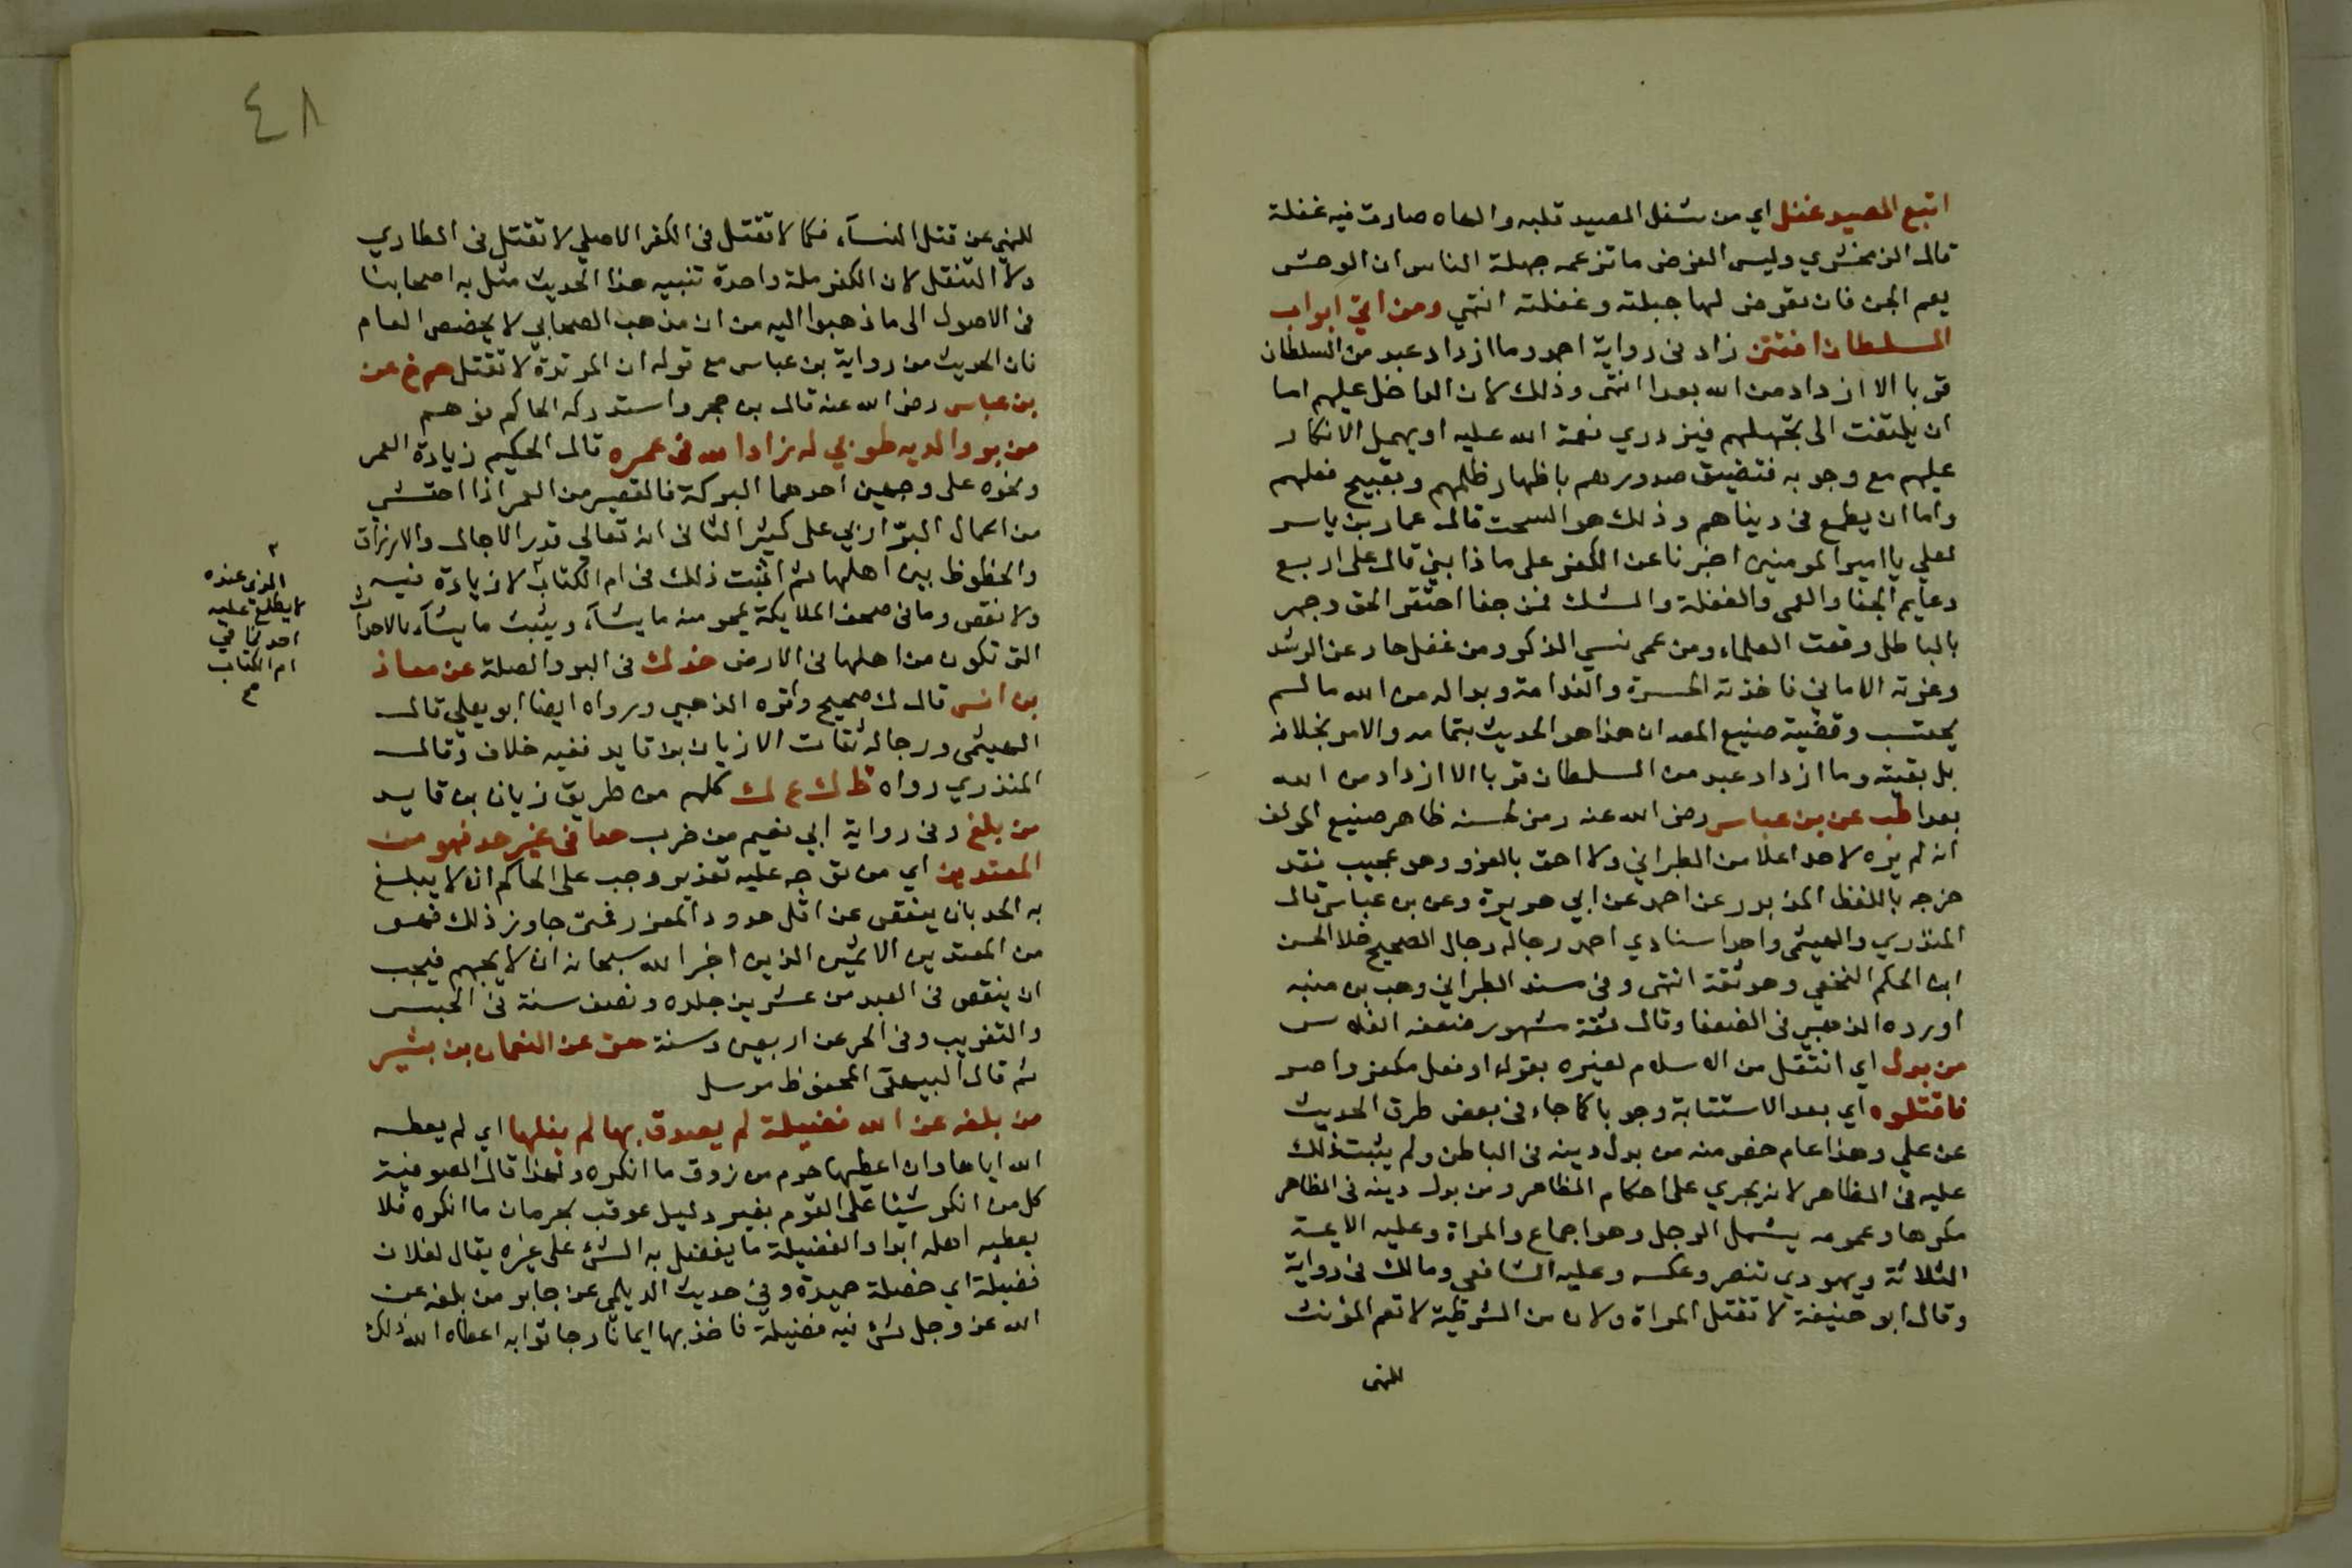 اتبع الصيد غفل اي من شغل الصيد قلبه والهاه صارت فيه غفلة
قال الزمخشري وليس الغرض ما تزعمه جهلة الناس ان الوحش
يعم الجن فان تعرض لها جبلته وغفلته انتهي ومن اتي ابواب
السلطان افتتن زاد في رواية احمد وما ازداد عبد من السلطان
قربا الا ازداد من الله بعدا انتهى وذلك لان الداخل عليهم اما
ان يلتفت الى تجملهم فيزدري نعمة الله عليه او يهمل الانكار
عليهم مع وجوبه فتضيق صدورهم باظهار ظلمهم وبقبيح فعلهم
واما ان يطمع في دنياهم وذلك هو السحت قال عمار بن ياسر
لعلي يا امير المومنين اخبرنا عن الكفر على ماذا بني قال على اربع
دعايم الجفا والعمى والغفلة والشك فمن جفا احتقر الحق وجهر
بالباطل ومقت العلماء ومن عمى نسي الذكر ومن غفل حاد عن الرشد
وغرته الاماني فاخذته الحسرة والندامة وبدا له من الله ما لم
يحتسب وقضية صنيع المص ان هذا هو الحديث بتمامه والامر بخلافه
بل بقيته وما ازداد عبد من السلطان قربا الا ازداد من الله
بعدا طب عن بن عباس رضى الله عنه رمز لحسنه ظاهر صنيع المولف
انه لم يره لاحد اعلا من الطبراني ولا احق بالعزو وهو عجيب فقد
خرجه باللفظ المزبور عن احمد عن ابي هريرة وعن بن عباس قال
المنذري والهيثمى واحد اسنادي احمد رجاله رجال الصحيح خلا الحسن
ابن الحكم النخعي وهو ثقة انتهى وفى سند الطبراني وهب بن منبه
اورده الذهبي فى الضعفا وقال ثقة مشهور ضعفه الفلاس
من بدل اي انتقل من الاسلام لغيره بقول او فعل مكفر واصر
فاقتلوه اي بعد الاستتابة وجوبا كما جاء فى بعض طرق الحديث
عن علي وهذا عام خص منه من بدل دينه فى الباطن ولم يثبت ذلك
عليه فى الظاهر لانه يجري على احكام الظاهر ومن بدل دينه فى الظاهر
مكرها وعمومه يشمل الرجل وهو اجماع والمراة وعليه الايمة
الثلاثة ويهودي تنصر وعكسه وعليه الشافعي ومالك فى رواية
وقال ابو حنيفة لا تقتل المراة ولان من الشرطية لا تعم المؤنث
للنهى
٤٨
للنهي عن قتل النسآء فكما لا تقتل فى الكفر الاصلي لا تقتل فى الطاري
ولا المنتقل لان الكفر ملة واحدة تنبيه هذا الحديث مثل به اصحابنا
فى الاصول الى ما ذهبوا اليه من ان مذهب الصحابي لا يخصص العام
فان الحديث من رواية بن عباس مع قوله ان المرتدة لا تقتل حم خ عن
بن عباس رضى الله عنه قال بن حجر واستدركه الحاكم فوهم
من بر والديه طوبي له زاد الله فى عمره قال الحكيم زيادة العمر
ونحوه على وجهين احدهما البركة فالقصير من العمر اذا احتشي
من اعمال البرّ اربي على كثير الثانى انه تعالى قدر الاجال والارزاق
والحظوظ بين اهلها ثم اثبت ذلك فى ام الكتاب لا زيادة فيه
ولا نقص وما فى صحف الملايكة يمحو منه ما يشآء ويثبت ما يشآء بالاحداث
التى تكون من اهلها فى الارض خد ك فى البر والصلة عن معاذ
بن انس قال ك صحيح واقره الذهبي ورواه ايضا ابو يعلي قال
الهيثمى ورجاله ثقات الا زبان بن قايد ففيه خلاف وقال
المنذري رواه ط ك ع ك كلهم من طريق زبان بن قايد
من بلغ وفى رواية ابي نعيم من ضرب حدا فى غير حد فهو من
المعتدين اي من توجه عليه تعذير وجب على الحاكم ان لا يبلغ
به الحد بان ينقص عن اقل حدود المعزر فمتى جاوز ذلك فهو
من المعتدين الاثمين الذين اخبر الله سبحانه انه لا يحبهم فيجب
ان ينقص فى العبد من عشرين جلده ونصف سنة فى الحبس
والتغريب وفى الحر عن اربعين وسنة هق عن النعمان بن بشير
ثم قال البيهقى المحفوظ مرسل
من بلغه عن الله فضيلة لم يصدق بها لم ينلها اي لم يعطه
الله اياها وان اعطيها حرم من ذوق ما انكره ولهذا قال الصوفية
كل من انكر شيئا على القوم بغير دليل عوقب بحرمان ما انكره فلا
يعطيه اهله ابدا والفضيلة ما يفضل به الشئ على غيره يقال لفلان
فضيلة اي خصلة حميدة وفي حديث الديلمى عن جابر من بلغه عن
الله عز وجل شئ فيه فضيلة فاخذ بها ايمانا ورجا ثوابه اعطاه الله ذلك
٢
الذى عنده
لا يطلع عليه
احد
ام الكتاب